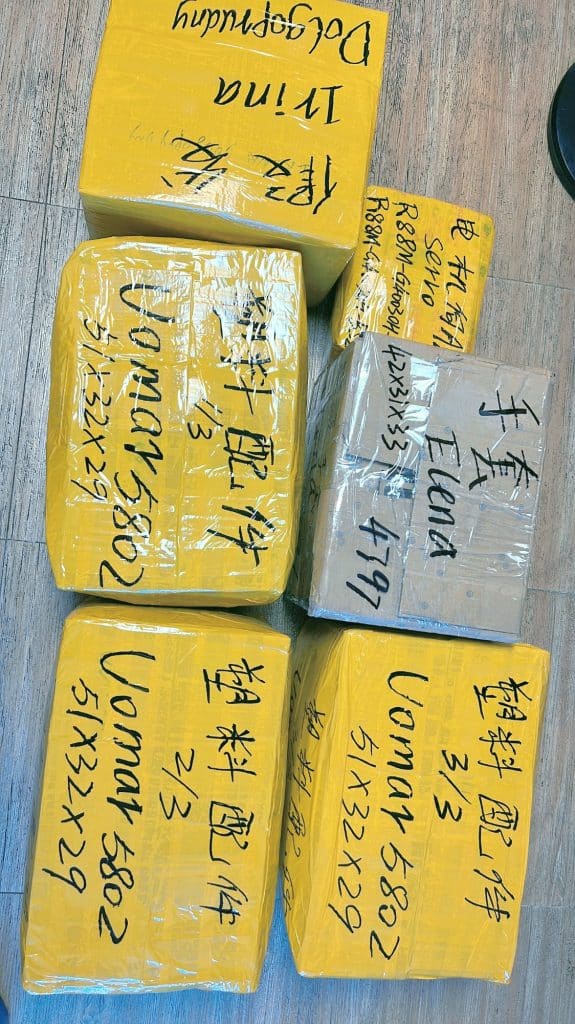 假发
Irina
Dolgoprudny
电机
servo
塑料配件
1/3
Uomar5802
51X32X29
手套
Elena
4797
42X31X33
塑料配件
2/3
Uomar5802
51X32X29
塑料配件
3/3
Uomar5802
51X32X29